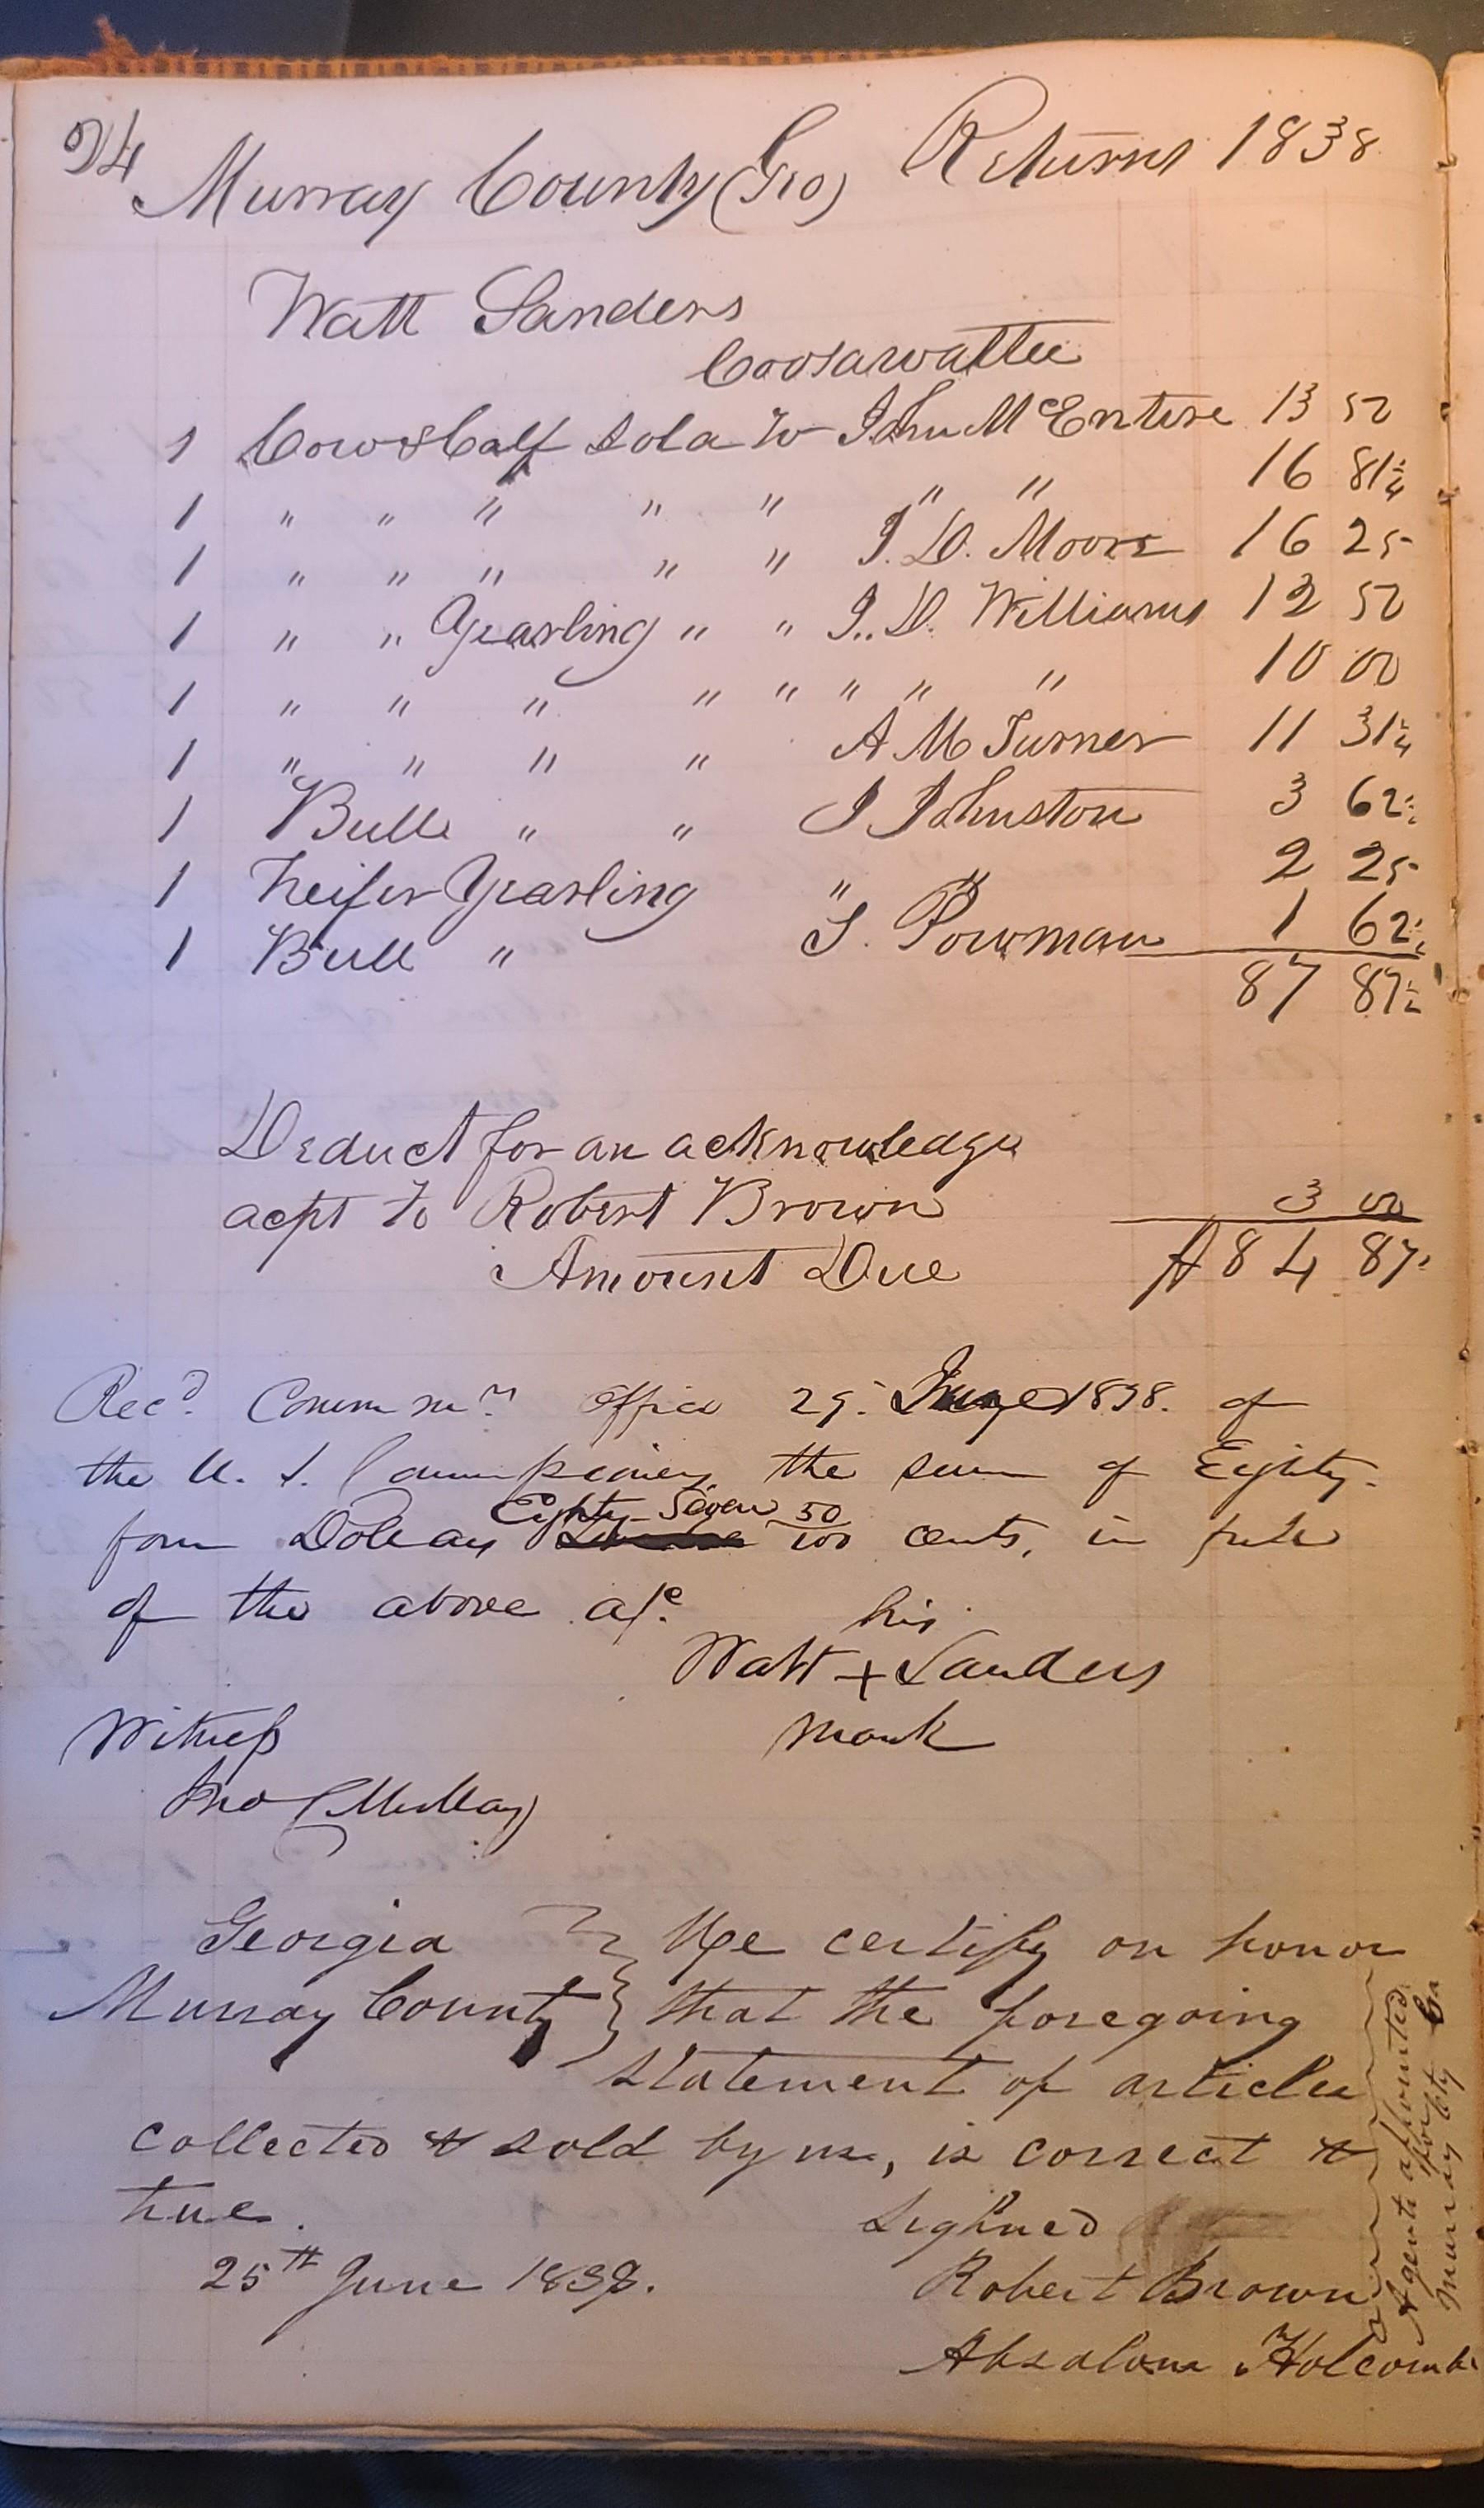 94 Murray County (Geo) Returns 1838
Watt Sanders
Coosawattee
1 Cow & Calf sold to John McEntire 13 50
1 " " " " " " " 16 81¼
1 " " " " " J. D. Moore 16 25
1 " " Yearling " " J. D. Williams 12 50
1 " " " " " " " " 10 00
1 " " " " A M Turner 11 31¼
1 Bull " " J Johnston 3 62½
1 heifer Yearling " " 2 25
1 Bull " S. Powman 1 62½
87 87½
Deduct for an acknowledge
acpt to Robert Brown 3 00
Amount Due $84 87½
Recd. Commrs. Office 29. June 1838. of
the U. S. Commissioners the sum of Eighty-
four Dollars Eighty-Seven 50/100 cents, in full
of the above a/c.
his
Watt + Sanders
mark
Witness
Jno C Mullay
Georgia } We certify on honor
Murray County } that the foregoing
statement of articles
collected & sold by us, is correct &
true.
Sighned
25th June 1838.
Robert Brown
Absalom Holcomb
Agents appointed
for
Murray Cty Ga